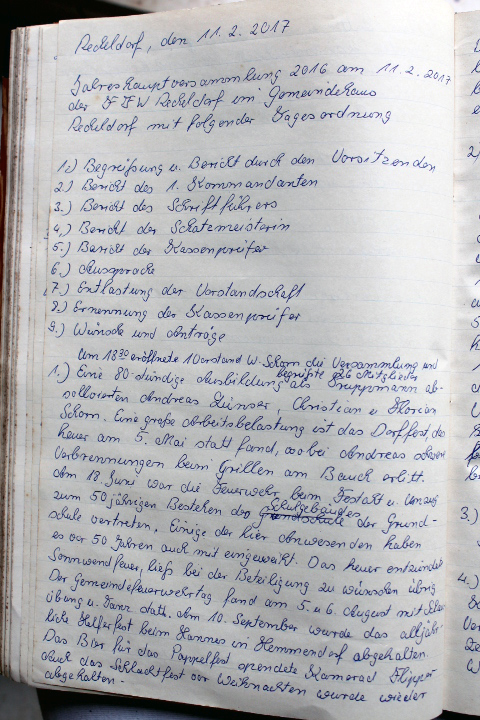 Reckeldorf, den 11.2.2017
Jahreshauptversammlung 2016 am 11.2.2017
der FFW Reckeldorf im Gemeindehaus
Reckeldorf mit folgender Tagesordnung
1.) Begrüßung u. Bericht durch den Vorsitzenden
2.) Bericht des 1. Kommandanten
3.) Bericht des Schriftführers
4.) Bericht der Schatzmeisterin
5.) Bericht der Kassenprüfer
6.) Aussprache
7.) Entlastung der Vorstandschaft
8.) Ernennung der Kassenprüfer
9.) Wünsche und Anträge
Um 18³⁰ eröffnete 1 Vorstand W. Schorn die Versammlung und
begrüßte 26 Mitglieder
1.) Eine 80-stündige Ausbildung als Truppmann ab-
solvierten Andreas, Christian u Florian
Schorn. Eine große Arbeitsbelastung ist das Dorffest, das
heuer am 5. Mai statt fand, wobei Andreas schwere
Verbrennungen beim Grillen am Bauch erlitt.
Am 18. Juni war die Feuerwehr beim Festakt u. Umzug
zum 50jährigen Bestehen des Schulgebäudes der Grund-
schule vertreten. Einige der hier Anwesenden haben
es vor 50 Jahren auch mit eingeweiht. Das heuer entzündete
Sonnwendfeuer ließ bei der Beteiligung zu wünschen übrig
Der Gemeindefeuerwehrtag fand am 5. u 6. August mit
übung u. Tanz statt. Am 10. September wurde das alljähr-
liche Helferfest beim Hannes in Hemmendorf abgehalten.
Das Bier für das Pappelfest spendete Kamerad
Auch das Schlachtfest vor Weihnachten wurde wieder
abgehalten.